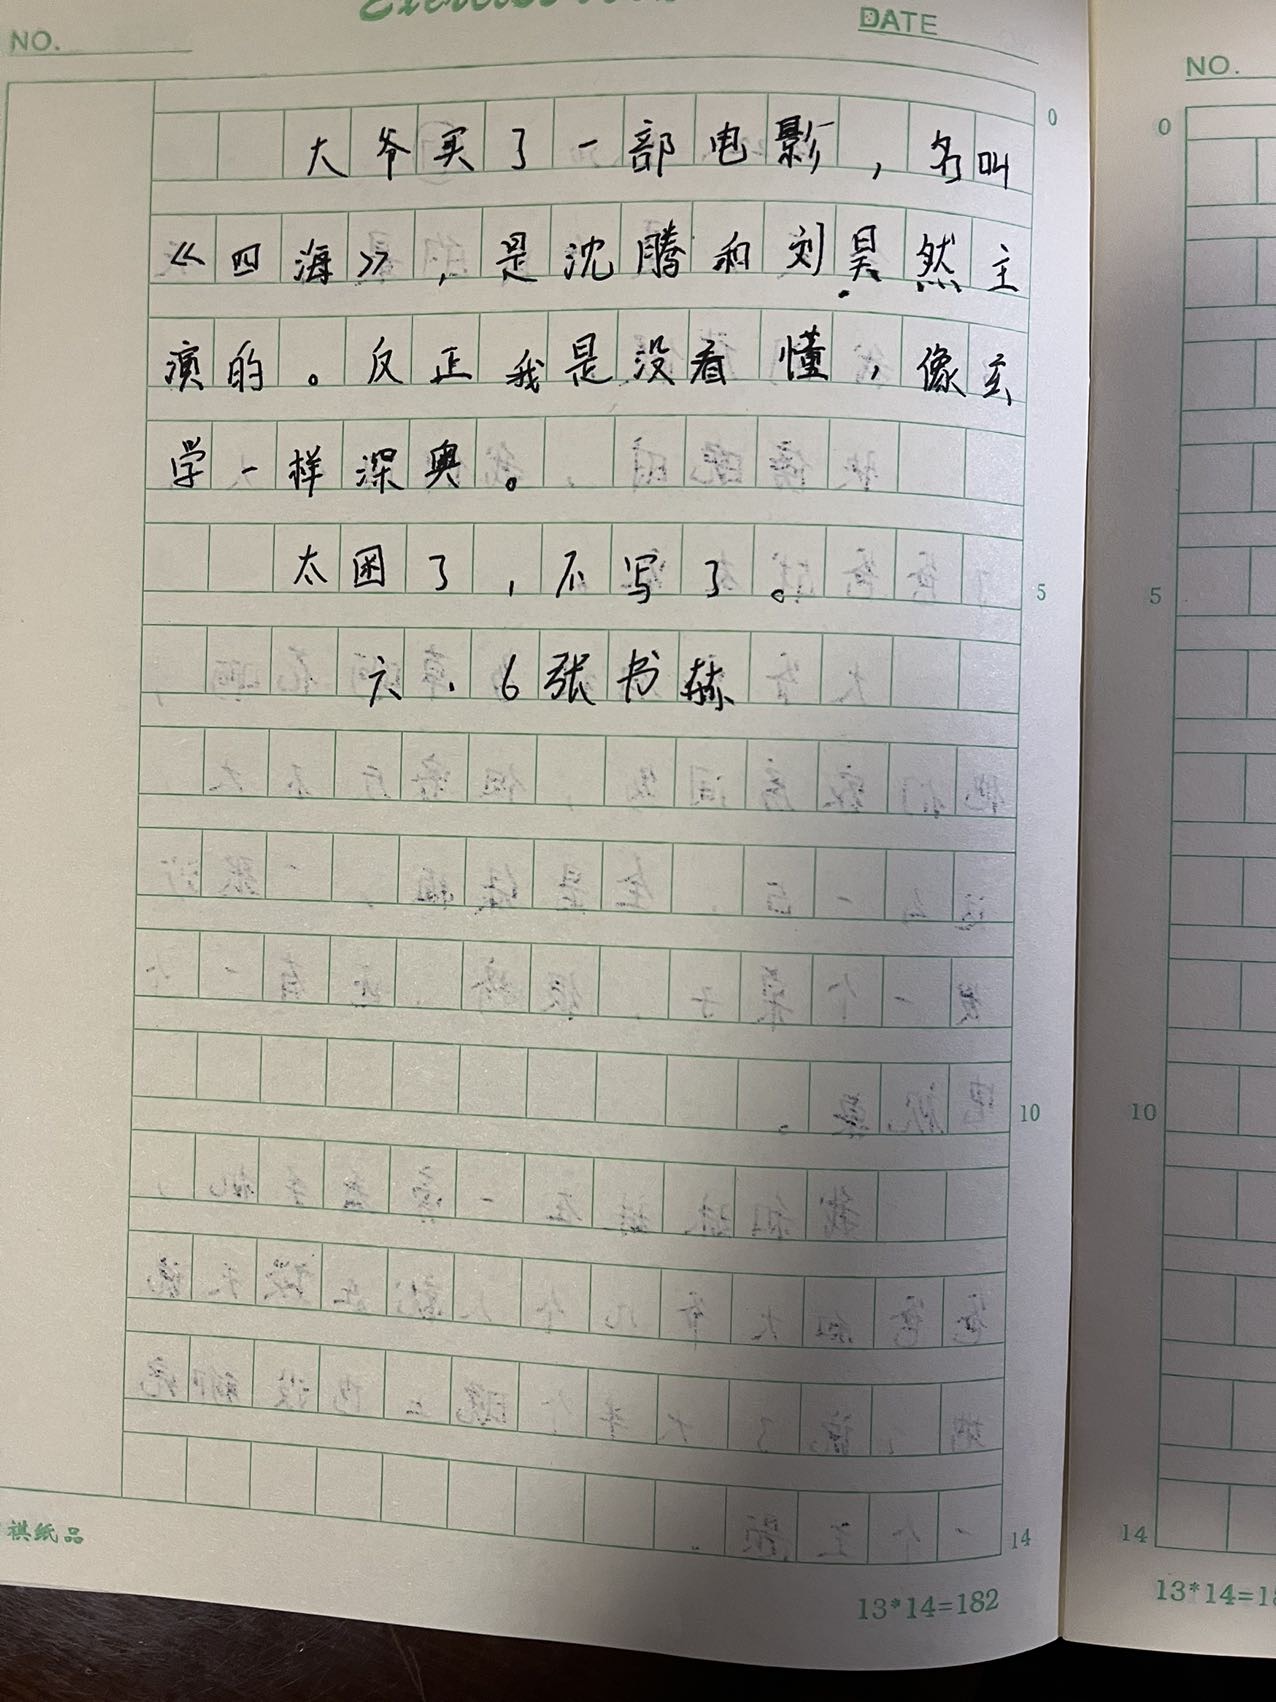 Exercise Book
NO.
DATE
NO.
大爷买了一部电影，名叫
《四海》，是沈腾和刘昊然主
演的。反正我是没看懂，像玄
学一样深奥。
太困了，不写了。
六.6张书赫
0
5
10
14
0
5
10
14
祺纸品
13*14=182
13*14=18